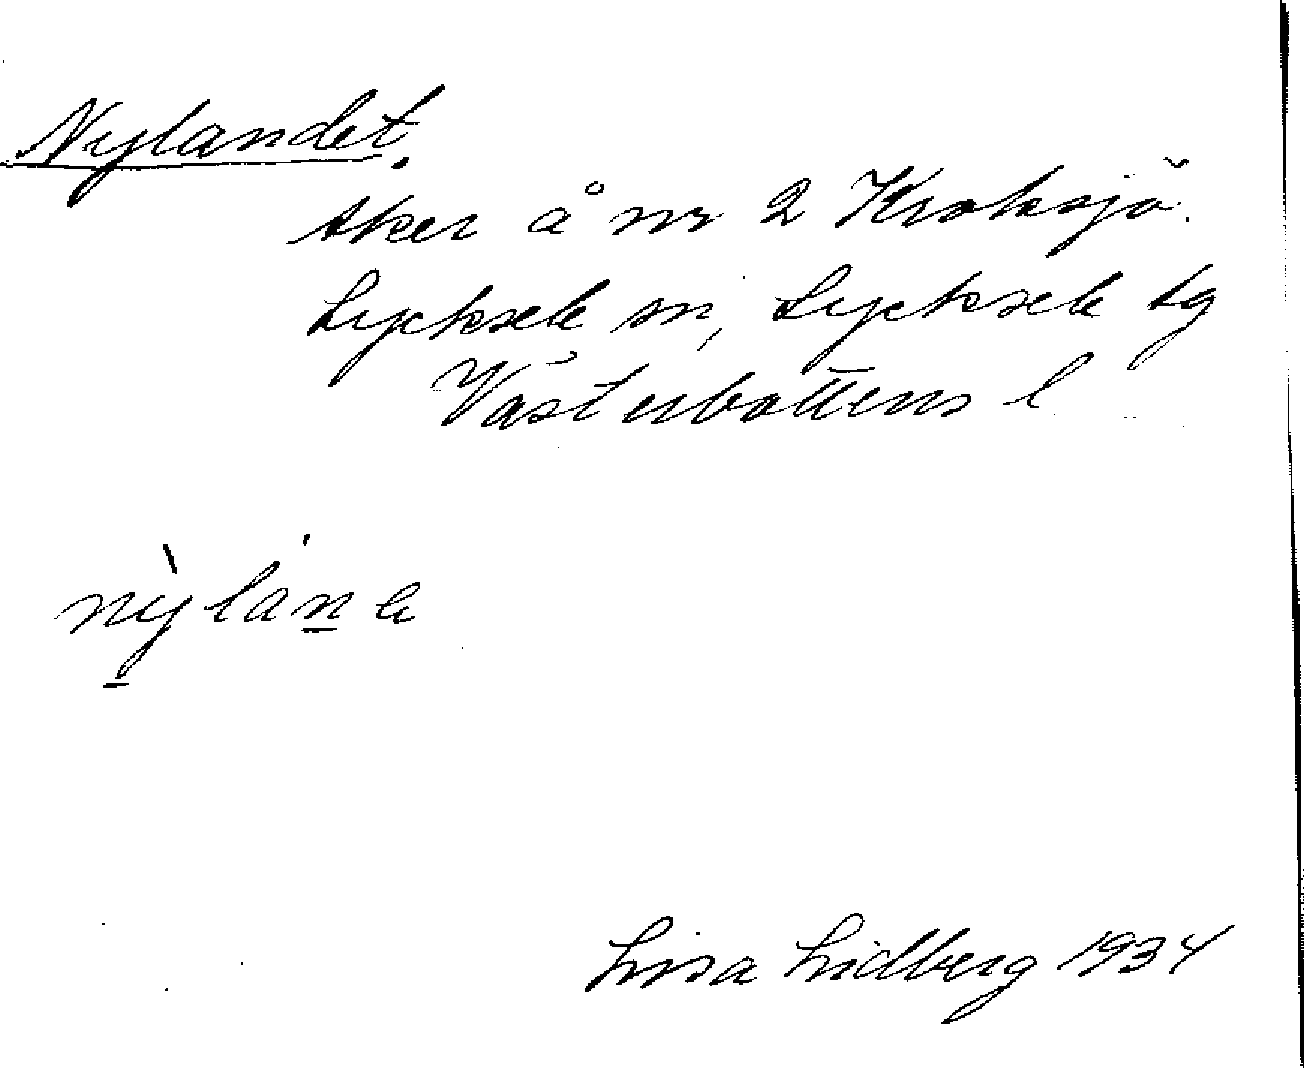 Nylandet.
åker å nr 2 Kroksjö.
Lycksele sn, Lycksele tg
Västerbottens l
nỳlána
Lisa Lidberg 1934